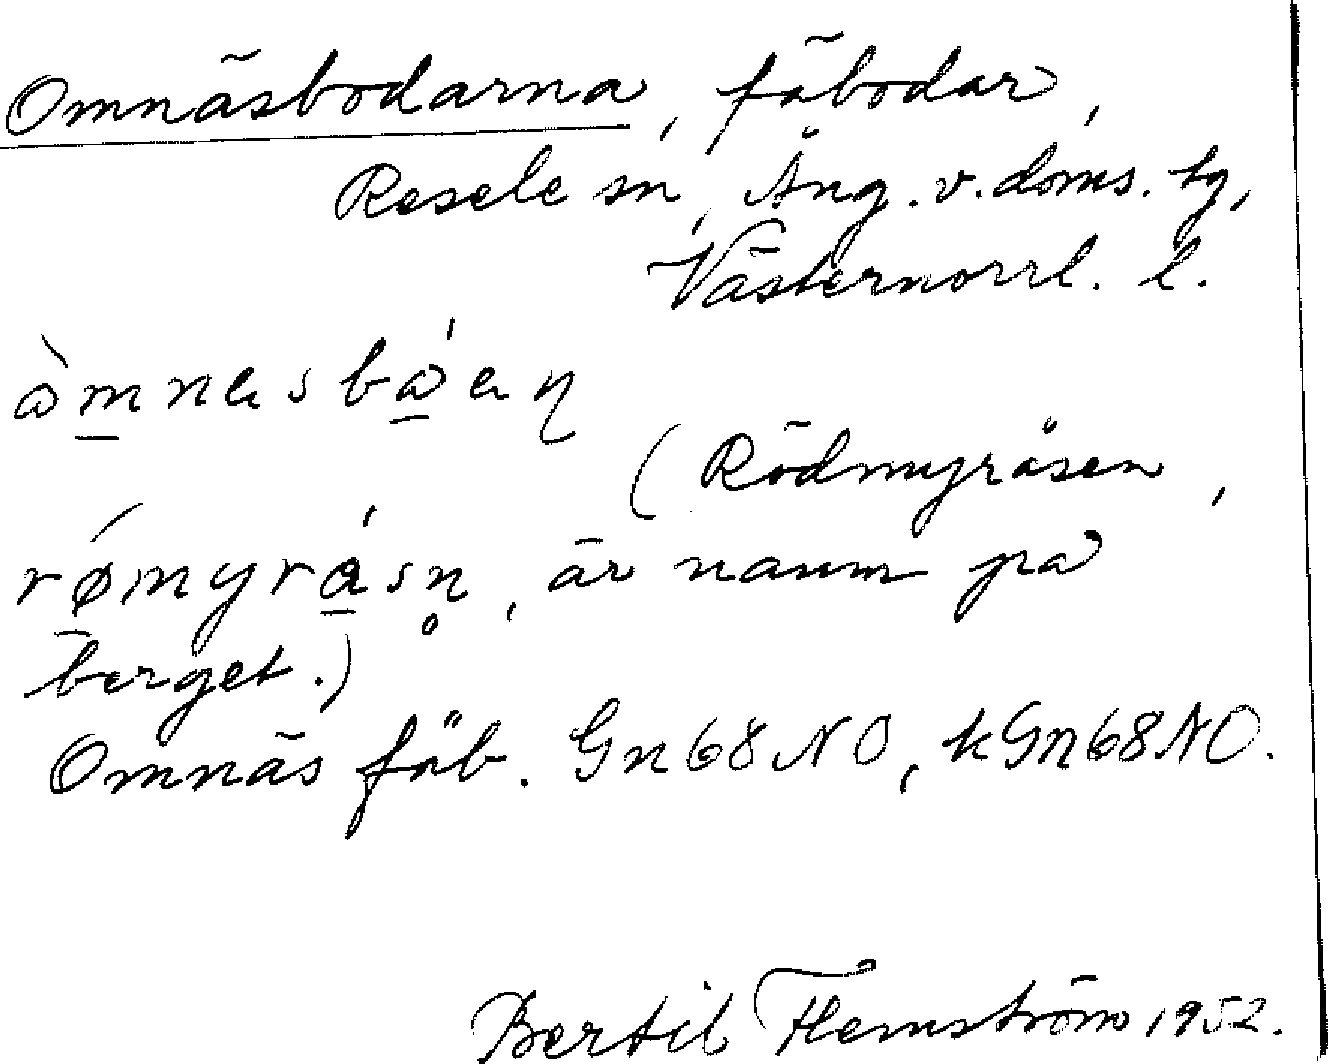 Omnäsbodarna, fäbodar,
Resele sn, Ång. v. doms. tg,
Västernorrl. l.
(Rödmyråsen,
är namn på
berget.)
Omnäs fäb. Gn68NO, kGn68NO.
Bertil Flemström 1952.